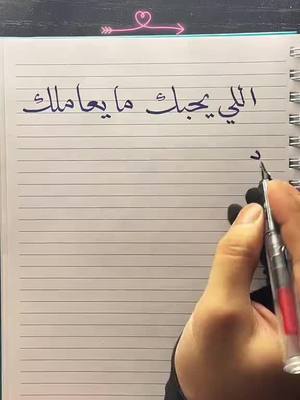 اللي يحبك ما يعاملك